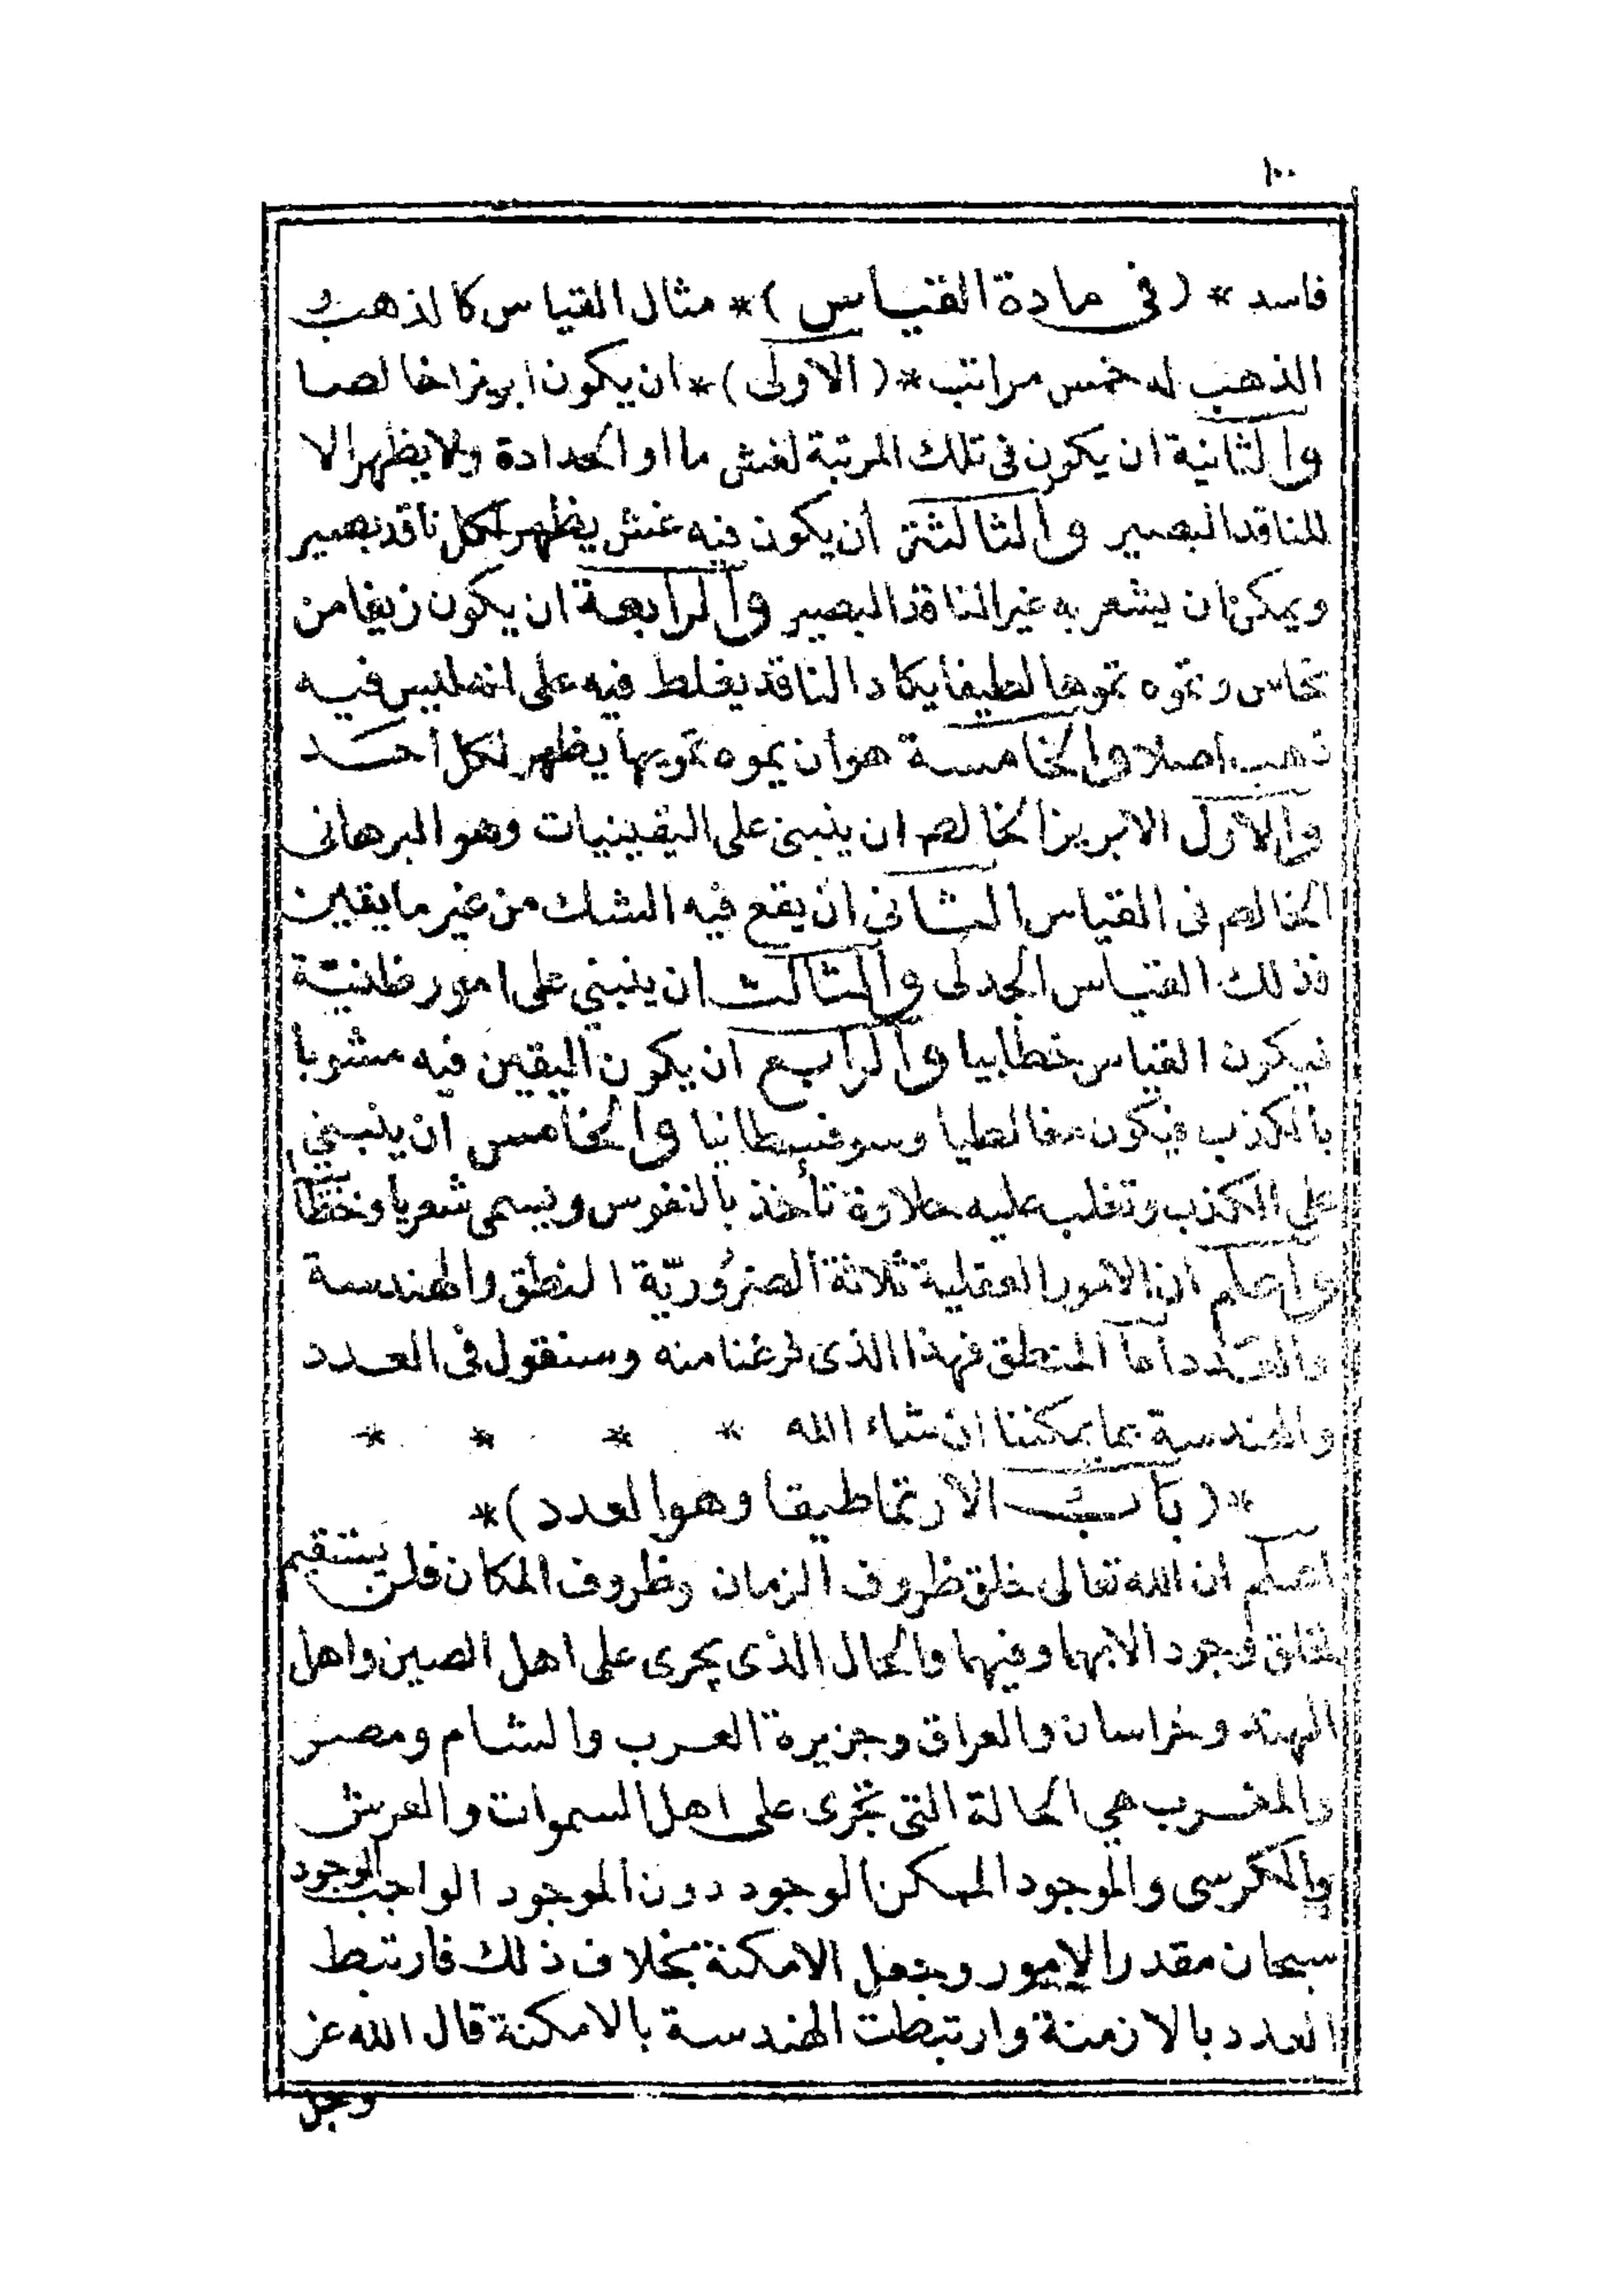 ١٠٠
فاسد * (فى مادة القياس) * مثال القياس كالذهب و
الذهب له خمس مراتب * (الاولى) * ان يكون ابريزا خالصا
والثانية ان يكون فى تلك المرتبة لغش ما او الحدادة ولا يظهر الا
للناقد البصير والثالثة أن يكون فيه غش يظهر لكل ناقد بصير
ويمكن ان يشعر به غير الناقد البصير والرابعة ان يكون زيفا من
نحاس وتموه تموها لطيفا يكاد الناقد يغلط فيه على انه ليس فيه
ذهب اصلا والخامسة هو أن يموه تمويها يظهر لكل أحد
والاول الابريز الخالص ان ينبنى على اليقينيات وهو البرهانى
الخالص فى القياس الثانى ان يقع فيه الشك من غير ما يقين
فذلك القياس الجدلى والثالث ان ينبني على امور ظنيّة
فيكون القياس خطابيا والرابع ان يكون اليقين فيه مشوبا
بالكذب فيكون مغالطيا وسوفسطانيا والخامس ان ينبني
على الكذب وتغلب عليه حلاوة تأخذ بالنفوس ويسمى شعريا
واعلم ان الامور العقلية ثلاثة الضرُوريّة النطق والهندسة
والعدد أما المنطق فهذا الذى فرغنا منه وسنقول فى العدد
والهندسة بما يمكننا ان شاء الله * * * *
* (باب الارتماطيقا وهو العدد) *
اعلم ان الله تعالى خلق ظروف الزمان وظروف المكان فلن يستقيم
وجود الا بهما وفيهما والحال الذى يجرى على اهل الصين واهل
الهند وخراسان والعراق وجزيرة العرب والشام ومصر
والمغرب هي الحالة التى تجرى على اهل السموات والعرش
والكرسى والموجود الممكن الوجود دون الموجود الواجب الوجود
سبحان مقدر الامور وجعل الامكنة بخلاف ذلك فارتبط
العدد بالازمنة وارتبطت الهندسة بالامكنة قال الله عز
وجل